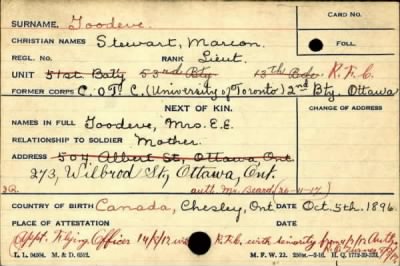 SURNAME. Goodeve. CARD NO.
CHRISTIAN NAMES Stewart, Marcon. FOLL.
REGL. NO. RANK Lieut.
UNIT 51st Batty 53rd Bty 13th Bde. R.F.C.
FORMER CORPS C.O.T.C. (University of Toronto) 2nd Bty. Ottawa
NEXT OF KIN. CHANGE OF ADDRESS
NAMES IN FULL Goodeve, Mrs. E.E.
RELATIONSHIP TO SOLDIER Mother.
ADDRESS 504 Albert St, Ottawa Ont.
273, Wilbrod St, Ottawa, Ont.
auth Mr. Beard (26-11-17)
COUNTRY OF BIRTH Canada, Chesley, Ont DATE Oct. 5th. 1896
PLACE OF ATTESTATION DATE
Appt. Flying Officer R.F.C. with seniority from
L. L. 94504. M. & D. 6512. M. F. W. 22. H. Q. 1772-39-339.